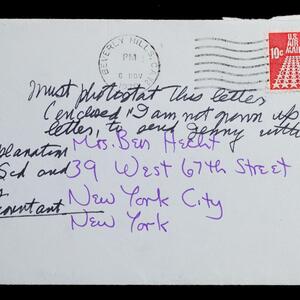 BEVERLY HILLS, CALIF.
PM
6 NOV
U.S. AIR MAIL
10c
Must photostat this letter
(enclosed "I am not grown up"
letter, to send Jenny with
planation
Scd and
Mrs. Ben Hecht
39 West 67th Street
countant
New York City
New York